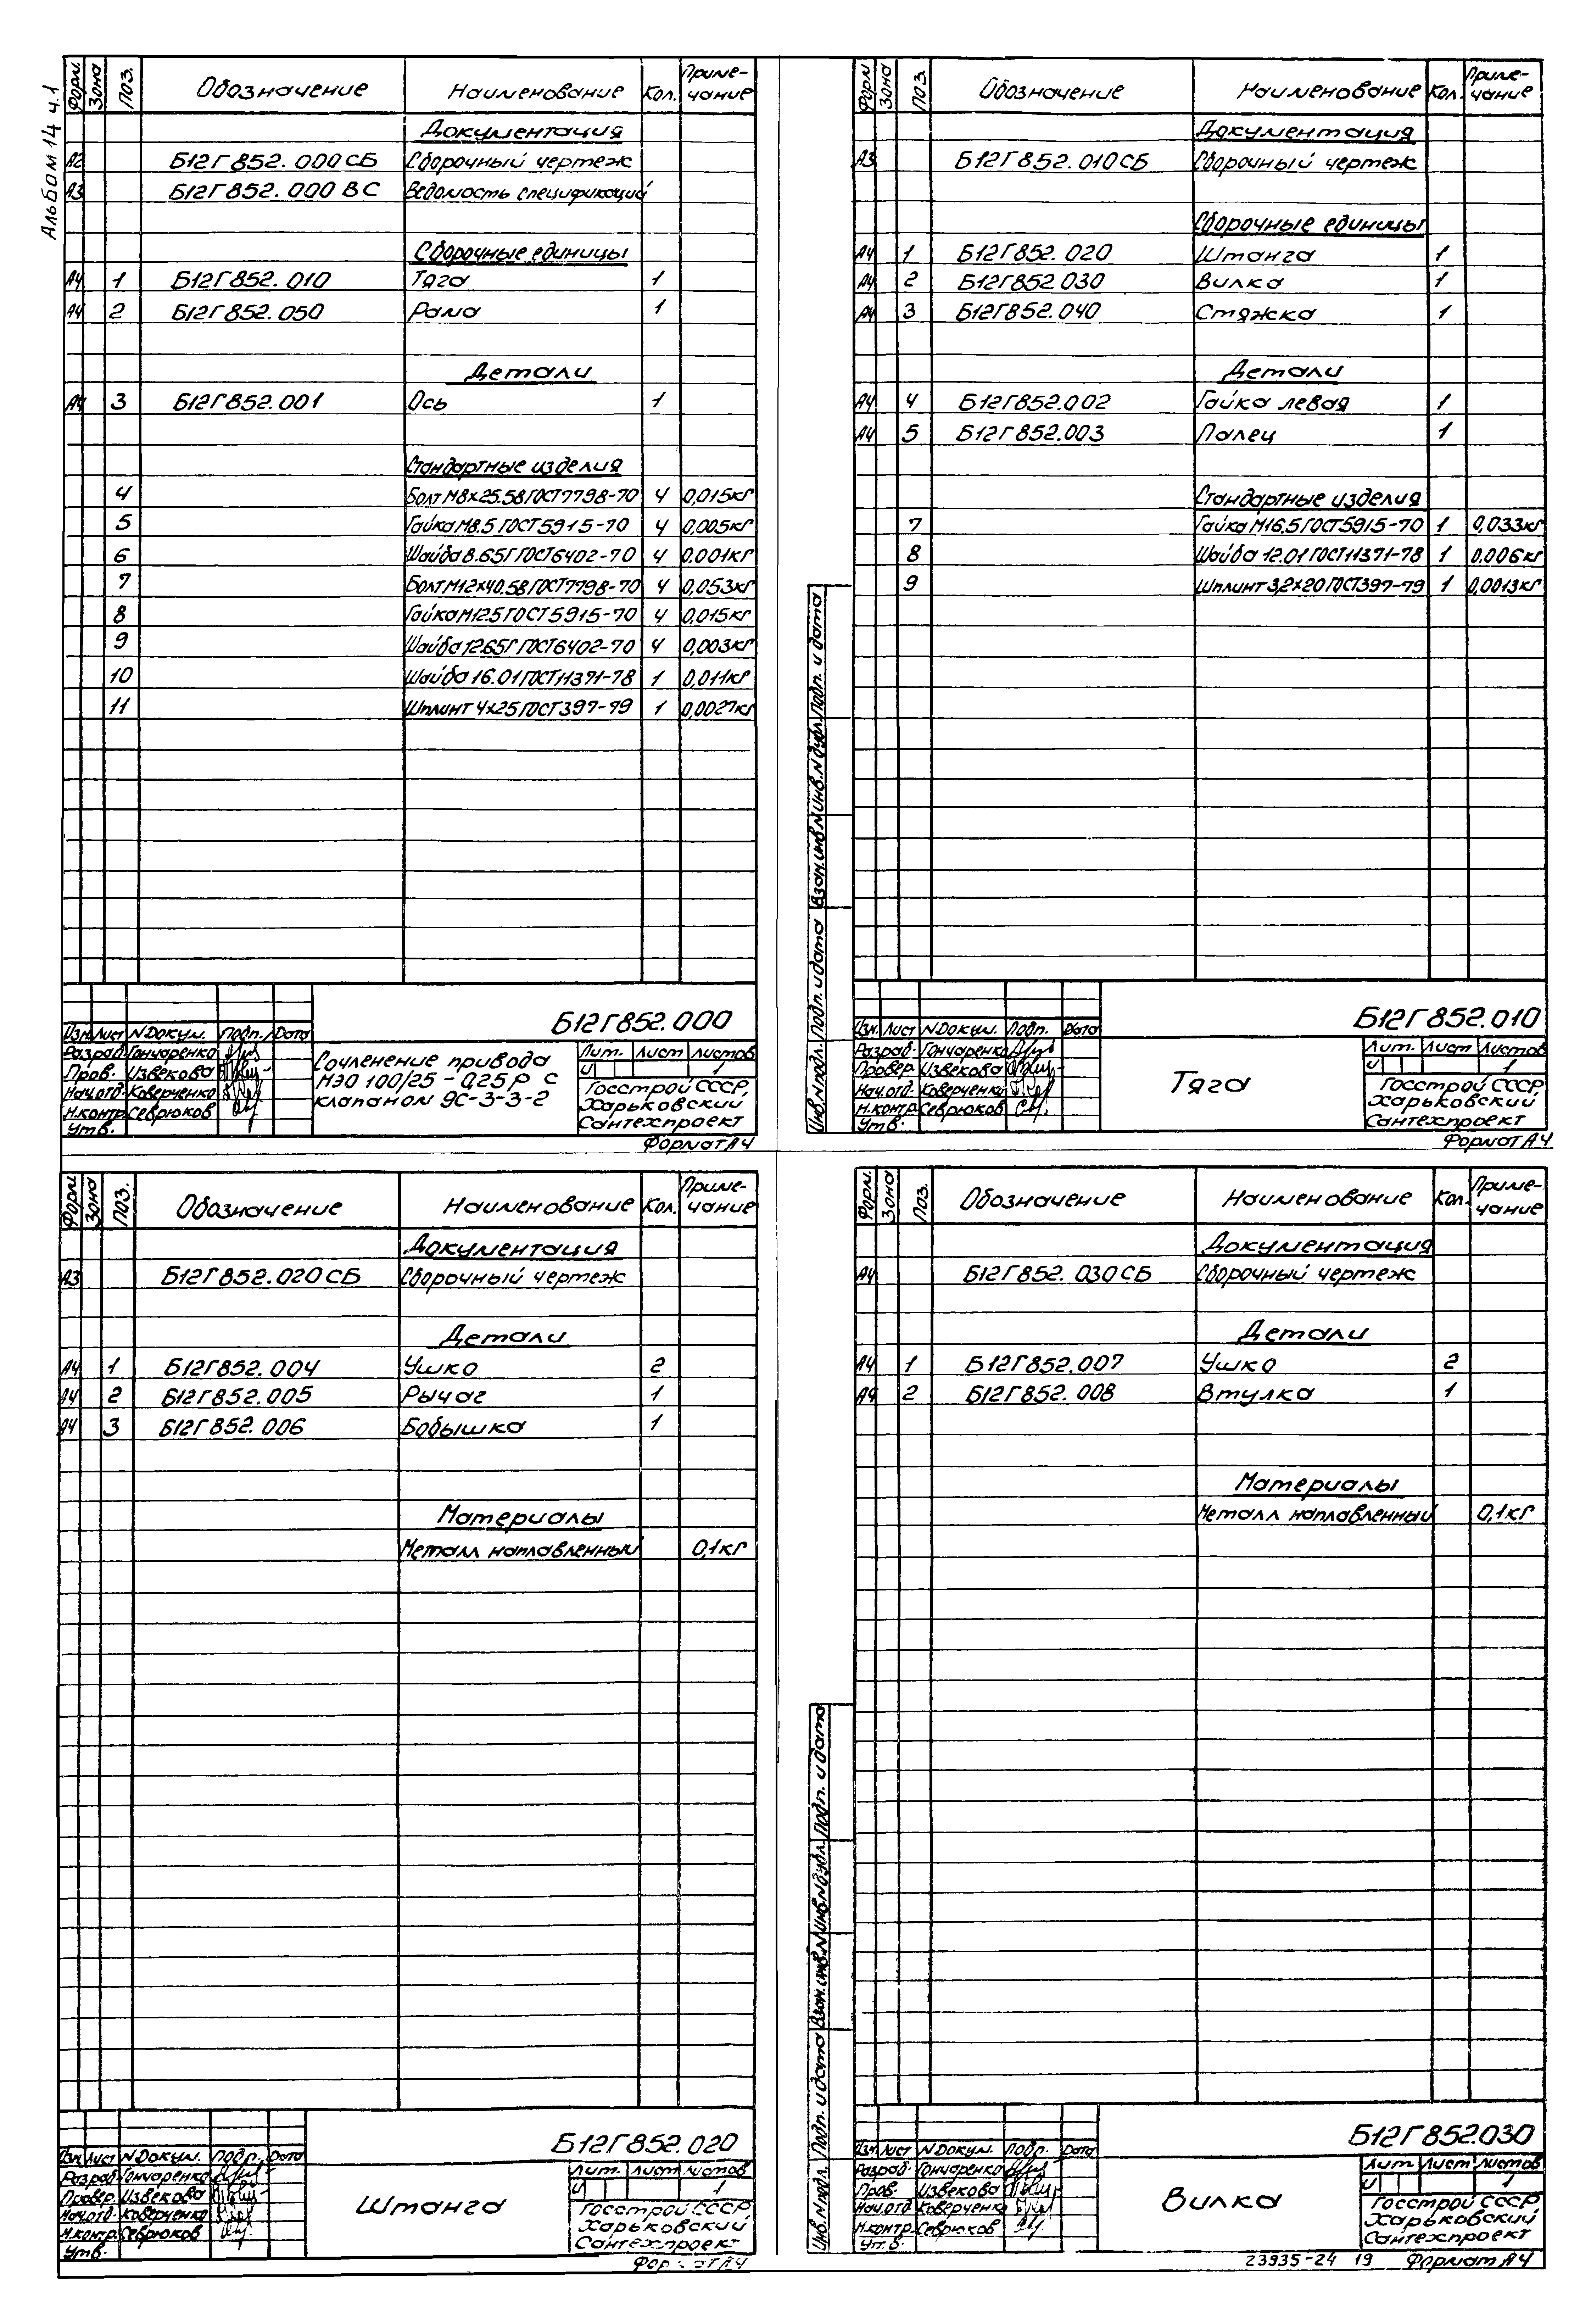 Альбом 14 ч.1
Форм. Зона Поз. Обозначение Наименование Кол. Приме-
чание
Документация
А2 Б12Г852.000СБ Сборочный чертеж
А3 Б12Г852.000 ВС Ведомость спецификаций
Сборочные единицы
А4 1 Б12Г852.010 Тяга 1
А4 2 Б12Г852.050 Рама 1
Детали
А4 3 Б12Г852.001 Ось 1
Стандартные изделия
4 Болт М8×25.58 ГОСТ7798-70 4 0,015кг
5 Гайка М8.5 ГОСТ5915-70 4 0,005кг
6 Шайба 8.65Г ГОСТ6402-70 4 0,001кг
7 Болт М12×40.58 ГОСТ7798-70 4 0,053кг
8 Гайка М12.5 ГОСТ5915-70 4 0,015кг
9 Шайба 12.65Г ГОСТ6402-70 4 0,003кг
10 Шайба 16.01 ГОСТ11371-78 1 0,011кг
11 Шплинт 4×25 ГОСТ397-79 1 0,0027кг
Б12Г852.000
Изм. Лист N Докум. Подп. Дата
Разраб. Гончаренко
Пров. Извекова
Нач.отд. Коверченко
Н.контр. Севрюков
Утв.
Сочленение привода
МЭО 100/25 - 0,25Р с
клапаном 9С-3-3-2
Лит. Лист Листов
И 1
Госстрой СССР
Харьковский
Сантехпроект
Формат А4
Форм. Зона Поз. Обозначение Наименование Кол. Приме-
чание
Документация
А3 Б12Г852.010СБ Сборочный чертеж
Сборочные единицы
А4 1 Б12Г852.020 Штанга 1
А4 2 Б12Г852.030 Вилка 1
А4 3 Б12Г852.040 Стяжка 1
Детали
А4 4 Б12Г852.002 Гайка левая 1
А4 5 Б12Г852.003 Палец 1
Стандартные изделия
7 Гайка М16.5 ГОСТ5915-70 1 0,033кг
8 Шайба 12.01 ГОСТ11371-78 1 0,006кг
9 Шплинт 3,2×20 ГОСТ397-79 1 0,0013кг
Инв.N подл. Подп. и дата Взам.инв.N Инв.N дубл. Подп. и дата
Б12Г852.010
Изм. Лист N Докум. Подп. Дата
Разраб. Гончаренко
Провер. Извекова
Нач.отд. Коверченко
Н.контр. Севрюков
Утв.
Тяга
Лит. Лист Листов
И 1
Госстрой СССР
Харьковский
Сантехпроект
Формат А4
Форм. Зона Поз. Обозначение Наименование Кол. Приме-
чание
Документация
А3 Б12Г852.020СБ Сборочный чертеж
Детали
А4 1 Б12Г852.004 Ушко 2
А4 2 Б12Г852.005 Рычаг 1
А4 3 Б12Г852.006 Бобышка 1
Материалы
Металл наплавленный 0,1кг
Б12Г852.020
Изм. Лист N Докум. Подр. Дата
Разраб. Гончаренко
Провер. Извекова
Нач.отд. Коверченко
Н.контр. Севрюков
Утв.
Штанга
Лит. Лист Листов
И 1
Госстрой СССР
Харьковский
Сантехпроект
Формат А4
Форм. Зона Поз. Обозначение Наименование Кол. Приме-
чание
Документация
А4 Б12Г852.030СБ Сборочный чертеж
Детали
А4 1 Б12Г852.007 Ушко 2
А4 2 Б12Г852.008 Втулка 1
Материалы
Металл наплавленный 0,1кг
Инв.N подл. Подп. и дата Взам.инв.N Инв.N дубл. Подп. и дата
Б12Г852.030
Изм. Лист N Докум. Подр. Дата
Разраб. Гончаренко
Пров. Извекова
Нач.отд. Коверченко
Н.контр. Севрюков
Утв.
Вилка
Лит. Лист Листов
И 1
Госстрой СССР
Харьковский
Сантехпроект
23935-24 19 Формат А4